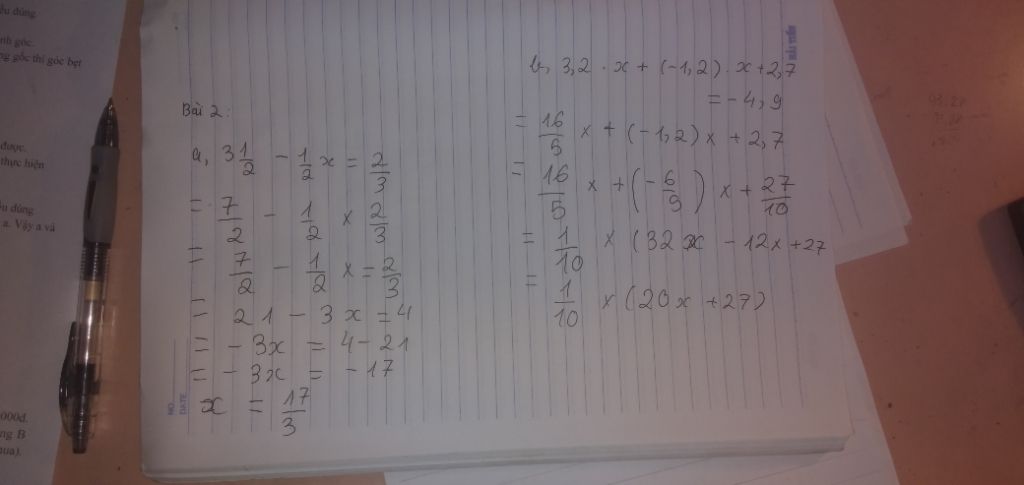 ều dùng
nh góc.
ng gốc thì góc bẹt
được.
thực hiện
ều dùng
a. Vậy a và
000đ.
ng B
ua).
Bài 2:
a, 3 1/2 - 1/2 x = 2/3
= 7/2 - 1/2 x 2/3
= 7/2 - 1/2 x = 2/3
= 21 - 3x = 4
= - 3x = 4 - 21
= - 3x = - 17
x = 17/3
NO
DATE
b, 3,2 . x + (-1,2) . x + 2,7
= - 4,9
= 16/5 x + (-1,2) x + 2,7
= 16/5 x + (- 6/5) x + 27/10
= 1/10 x (32x - 12x + 27
= 1/10 x (20x + 27)